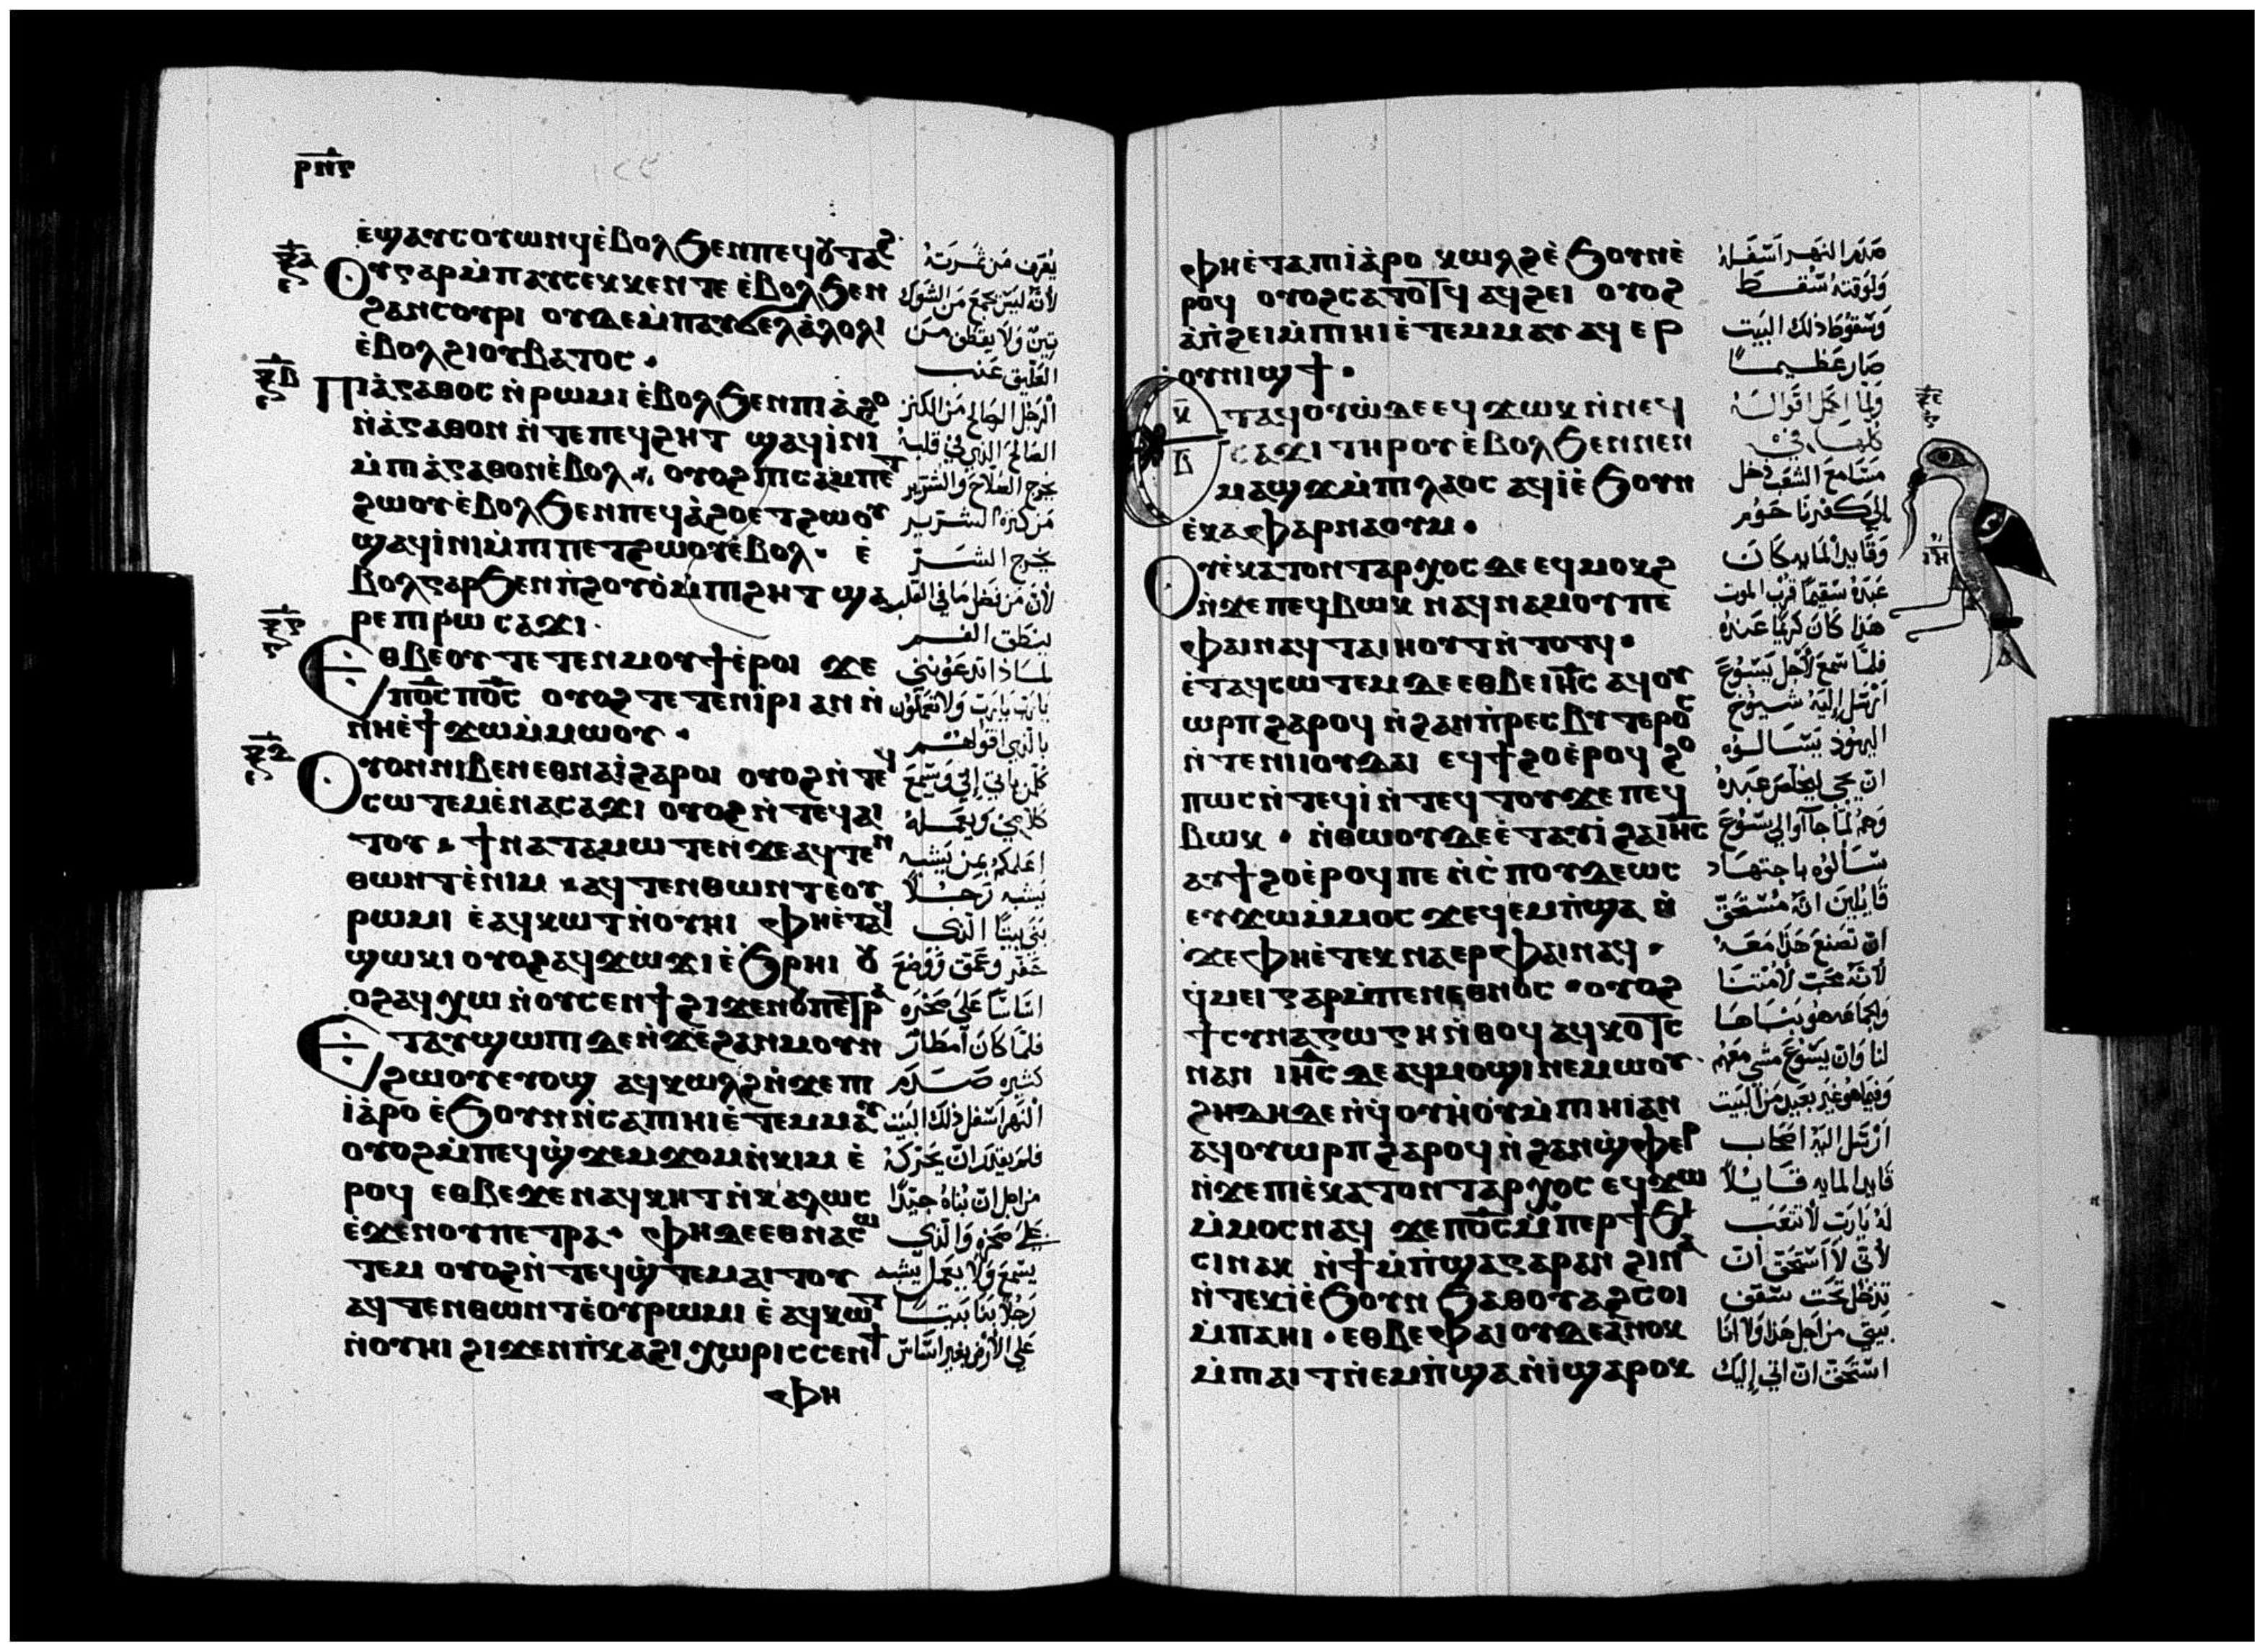 ⲣⲛⲋ
ⲉ̀ϣⲁⲩⲥⲟⲩⲱⲛϥ ⲉ̀ⲃⲟⲗϧⲉⲛⲡⲉϥⲟⲩⲧⲁϩ
ⲟⲩⲅⲁⲣⲙ̀ⲡⲁⲩⲥⲉⲕⲕⲉⲛⲧⲉ ⲉ̀ⲃⲟⲗϧⲉⲛ
ϩⲁⲛⲥⲟⲩⲣⲓ ⲟⲩⲇⲉⲙ̀ⲡⲁⲩϭⲉⲗⲁ̀ⲗⲟⲗⲓ
ⲉ̀ⲃⲟⲗϩⲓⲟⲩⲃⲁⲧⲟⲥ ·
ⲡⲓⲁ̀ⲅⲁⲑⲟⲥ ⲛ̀ⲣⲱⲙⲓ ⲉ̀ⲃⲟⲗϧⲉⲛⲡⲓⲁ̀ϩⲟ
ⲛ̀ⲁ̀ⲅⲁⲑⲟⲛ ⲛ̀ⲧⲉⲡⲉϥϩⲏⲧ ϣⲁϥⲓ̀ⲛⲓ
ⲙ̀ⲡⲓⲁ̀ⲅⲁⲑⲟⲛⲉ̀ⲃⲟⲗ ⲟⲩⲟϩⲡⲓⲥⲁⲙⲡⲉⲧ
ϩⲱⲟⲩ ⲉ̀ⲃⲟⲗϧⲉⲛⲡⲉϥⲁ̀ϩⲟⲉⲧϩⲱⲟⲩ
ϣⲁϥⲓ̀ⲛⲓⲙ̀ⲡⲓⲡⲉⲧϩⲱⲟⲩⲉ̀ⲃⲟⲗ · ⲉ̀
ⲃⲟⲗⲅⲁⲣϧⲉⲛⲡ̀ϩⲟⲩⲟ̀ⲙ̀ⲡⲓϩⲏⲧ ϣⲁ
ⲣⲉⲡⲓⲣⲱ ⲥⲁϫⲓ ·
ⲉⲑⲃⲉⲟⲩ ⲧⲉⲧⲉⲛⲙⲟⲩϯⲉ̀ⲣⲟⲓ ϫⲉ
ⲡⲟ̅ⲥ̅ ⲡⲟ̅ⲥ̅ ⲟⲩⲟϩ ⲧⲉⲧⲉⲛⲓ̀ⲣⲓ ⲁⲛ ⲛ̀
ⲛⲏⲉ̀ϯϫⲱⲙ̀ⲙⲱⲟⲩ ·
ⲟⲩⲟⲛⲛⲓⲃⲉⲛ ⲉⲑⲛⲁⲓ̀ϩⲁⲣⲟⲓ ⲟⲩⲟϩⲛ̀ⲧⲉϥ
ⲥⲱⲧⲉⲙⲉ̀ⲛⲁⲥⲁϫⲓ ⲟⲩⲟϩⲛ̀ⲧⲉϥⲁⲓ
ⲧⲟⲩ · ϯⲛⲁⲧⲁⲙⲱⲧⲉⲛ ϫⲉⲁϥⲧⲉⲛ
ⲑⲱⲛⲧⲉ̀ⲛⲓⲙ · ⲁϥⲧⲉⲛⲑⲱⲛⲧⲉ̀ⲟⲩ
ⲣⲱⲙⲓ ⲉ̀ⲁϥⲕⲱⲧⲛ̀ⲟⲩⲏⲓ ⲫⲏⲉ̀ⲧⲁϥ
ϣⲱⲕⲓ ⲟⲩⲟϩⲁϥϫⲱⲕⲓ ⲉ̀ϧⲣⲏⲓ ⲟⲩ
ⲟϩⲁϥⲭⲱ ⲛ̀ⲟⲩⲥⲉⲛϯ ϩⲓϫⲉⲛⲟⲩⲡⲉⲧⲣⲁ
ⲉⲧⲁⲩϣⲱⲡⲓ ⲇⲉⲛ̀ϫⲉϩⲁⲛⲙⲟⲩⲛ
ϩⲱⲟⲩⲉⲩⲟϣ ⲁϥⲕⲱⲗϩⲛ̀ϫⲉⲡ
ⲓⲁ̀ⲣⲟ ⲉ̀ϧⲟⲩⲛⲛ̀ⲥⲁⲡⲓⲏⲓⲉ̀ⲧⲉⲙⲙⲁⲩ
ⲟⲩⲟϩⲙ̀ⲡⲉϥϣ̀ϫⲉⲙϫⲟⲙⲛ̀ⲕⲓⲙ ⲉ̀
ⲣⲟϥ ⲉⲑⲃⲉϫⲉ ⲛⲁϥⲕⲏⲧ ⲛ̀ⲕⲁⲗⲱⲥ
ⲉ̀ϫⲉⲛⲟⲩⲡⲉⲧⲣⲁ · ⲫⲏⲇⲉⲉⲑⲛⲁⲥⲱ
ⲧⲉⲙ ⲟⲩⲟϩⲛ̀ⲧⲉϥϣ̀ⲧⲉⲙⲁⲓⲧⲟⲩ
ⲁϥⲧⲉⲛⲑⲱⲛⲧⲉ̀ⲟⲩⲣⲱⲙⲓ ⲉ̀ⲁϥⲕⲱⲧ
ⲛ̀ⲟⲩⲏⲓ ϩⲓϫⲉⲛⲡ̀ⲕⲁϩⲓ ⲭⲱⲣⲓⲥⲥⲉⲛϯ
ⲫⲏ
يُعرف من ثمرته
لأنه ليس يجمع من الشوك
تين ولا يقطف من
العليق عنب
الرجل الصالح من الكنز
الصالح الذي في قلبه
يخرج الصلاح والشرير
من كنزه الشرير
يخرج الشر
لأن من فضل ما في القلب
ينطق الفم
لماذا تدعونني
يا رب يا رب ولا تعملون
بالذي اقوله لكم
كل من ياتي إلي ويسمع
كلامي ويعمله
اعلمكم بمن يشبه
يشبه رجلا
بنى بيتا الذي
حفر وعمق ووضع
اساسا على صخره
فلما كان امطار
كثيره صدم
النهر اسفل ذلك البيت
فلم يقدر ان يحركه
من اجل ان بناه جيدا
على صخره والذي
يسمع ولا يعمل يشبه
رجلا بنا بيتا
على الأرض بغير اساس
ⲫⲏⲉ̀ⲧⲁⲡⲓⲁ̀ⲣⲟ ⲕⲱⲗϩⲉ̀ϧⲟⲩⲛⲉ̀
ⲣⲟϥ ⲟⲩⲟϩⲥⲁⲧⲟⲧϥ ⲁϥϩⲉⲓ ⲟⲩⲟϩ
ⲁⲡ̀ϩⲉⲓⲙ̀ⲡⲓⲏⲓⲉ̀ⲧⲉⲙⲙⲁⲩ ⲁϥⲉⲣ
ⲟⲩⲛⲓϣϯ ·
ⲉⲧⲁϥⲟⲩⲱ̀ⲇⲉ ⲉϥϫⲱⲕ ⲛ̀ⲛⲉϥ
ⲥⲁϫⲓ ⲧⲏⲣⲟⲩ ⲉ̀ⲃⲟⲗϧⲉⲛⲛⲉⲛ
ⲙⲁϣϫⲙ̀ⲡⲓⲗⲁⲟⲥ ⲁϥⲓ̀ⲉ̀ϧⲟⲩⲛ
ⲉ̀ⲕⲁⲫⲁⲣⲛⲁⲟⲩⲙ ·
ⲟⲩⲉ̀ⲕⲁⲧⲟⲛⲧⲁⲣⲭⲟⲥ ⲇⲉ ⲉϥⲙⲟⲕϩ
ⲛ̀ϫⲉⲡⲉϥⲃⲱⲕ ⲛⲁϥⲛⲁⲙⲟⲩⲡⲉ
ⲫⲁⲓⲛⲁϥⲧⲁⲓⲏⲟⲩⲧⲛ̀ⲧⲟⲧϥ ·
ⲉ̀ⲧⲁϥⲥⲱⲧⲉⲙⲇⲉ ⲉⲑⲃⲉⲓⲏ̅ⲥ̅ ⲁϥⲟⲩ
ⲱⲣⲡ ϩⲁⲣⲟϥ ⲛ̀ϩⲁⲛⲡ̀ⲣⲉⲥⲃⲩⲧⲉⲣⲟⲥ
ⲛ̀ⲧⲉⲛⲓⲓⲟⲩⲇⲁⲓ ⲉϥϯϩⲟⲉ̀ⲣⲟϥ ϩⲟ
ⲡⲱⲥ ⲛ̀ⲧⲉϥⲓ̀ ⲛ̀ⲧⲉϥⲧⲟⲩϫⲉ ⲡⲉϥ
ⲃⲱⲕ · ⲛ̀ⲑⲱⲟⲩⲇⲉ ⲉ̀ⲧⲁⲩⲓ̀ ϩⲁⲓⲏ̅ⲥ̅
ⲁⲩϯϩⲟⲉ̀ⲣⲟϥⲡⲉ ⲛ̀ⲥ̀ⲡⲟⲩⲇⲉⲱⲥ
ⲉⲩϫⲱⲙ̀ⲙⲟⲥ ϫⲉϥⲉⲙⲡ̀ϣⲁ ⲛ̀
ϫⲉⲫⲏⲉ̀ⲧⲉⲕⲛⲁⲉⲣⲫⲁⲓⲛⲁϥ ·
ϥ̀ⲙⲉⲓ ⲅⲁⲣⲙ̀ⲡⲉⲛⲉⲑⲛⲟⲥ · ⲟⲩⲟϩ
ϯⲥⲩⲛⲁⲅⲱⲅⲏ ⲛ̀ⲑⲟϥ ⲁϥⲕⲟⲧⲥ
ⲛⲁⲛ ⲓⲏ̅ⲥ̅ ⲇⲉⲁϥⲙⲟϣⲓⲛⲉⲙⲱⲟⲩ ·
ϩⲏⲇⲏⲇⲉ ⲛ̀ϥ̀ⲟⲩⲏ̀ⲟⲩⲙ̀ⲡⲓⲏⲓⲁⲛ
ⲁϥⲟⲩⲱⲣⲡ ϩⲁⲣⲟϥ ⲛ̀ϩⲁⲛϣ̀ⲫⲉⲣ
ⲛ̀ϫⲉⲡⲓⲉ̀ⲕⲁⲧⲟⲛⲧⲁⲣⲭⲟⲥ ⲉϥϫⲱ
ⲙ̀ⲙⲟⲥⲛⲁϥ ϫⲉⲡⲟ̅ⲥ̅ ⲙ̀ⲡⲉⲣϯϧⲓ
ⲥⲓⲛⲁⲕ ⲛ̀ϯⲙ̀ⲡ̀ϣⲁⲅⲁⲣⲁⲛ ϩⲓⲛⲁ
ⲛ̀ⲧⲉⲕⲓ̀ⲉ̀ϧⲟⲩⲛ ϧⲁⲑⲟⲩⲁϩⲥⲟⲓ
ⲙ̀ⲡⲁⲏⲓ · ⲉⲑⲃⲉⲫⲁⲓ ⲟⲩⲇⲉⲁⲛⲟⲕ
ⲙ̀ⲡⲁⲓⲧⲛ̀ⲉⲙⲡ̀ϣⲁⲛ̀ⲓ̀ϣⲁⲣⲟⲕ
صدم النهر اسفله
ولوقته سقط
وسقوط ذلك البيت
صار عظيما
ولما اكمل اقواله
كلها في
مسامع الشعب دخل
إلى كفرناحوم
وقايد الماية كان
عبده سقيما قرب الموت
هذا كان كريما عنده
فلما سمع لأجل يسوع
ارسل إليه شيوخ
اليهود يسالوه
ان يجي ليخلص عبده
وهم لما جاآوا الى يسوع
سألوه باجتهاد
قايلين انه مستحق
ان تصنع هذا معه
لأنه محب لأمتنا
والجماعه هو بناها
لنا وان يسوع مشى معهم
وفيما هو غير بعيد من البيت
ارسل اليه اصحاب
قايد المايه قايلا
له يا رب لا تتعب
لأني لا استحق ان
تدخل تحت سقف
بيتي من اجل هذا ولا انا
استحق ان اتي إليك